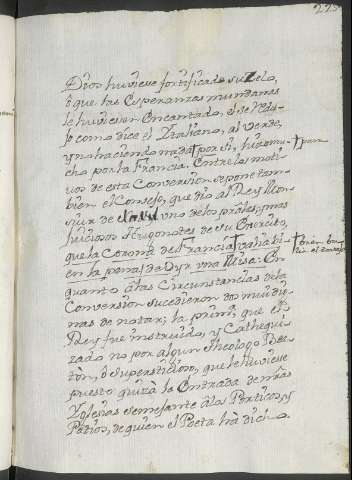 223
Dios huviese fortificado su Zelo,
ò que las Esperanzas mundanas
le huviesen Encantado, el se redu-
jo como dice el Italiano, al Verde,
y no haciendo nada por si, hizo mu- † para
cho por la Francia. Entre los moti-
vos de esta Conversion se pone tam-
bien el Consejo, que dio al Rey Mon-
siur de uno de los prãles, y mas
juiciosos Hugonotes de su Exercito,
que la Corona de Francia † valia bi-
en la pena de Oyr una Misa. En
quanto à las Circunstancias de la
Conversion sucedieron dos mui dig-
nas de notar; la prim.ª que el
Rey fue instruido, y Cathequi-
zado no por algun Theologo
ò Supersticioso, que le huviese
puesto quizà la Entrada de nr̃as
Yglesias semejante à los Porticos, y
Patios, de quien el Poeta hà dicho